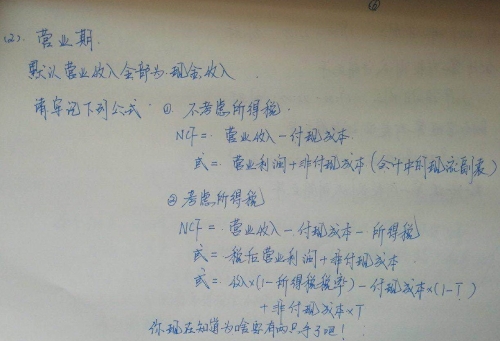 (2). 营业期.
默认营业收入全部为现金收入.
请牢记下列公式 ① 不考虑所得税.
NCF=. 营业收入-付现成本.
或=. 营业利润+非付现成本(会计中的现流副表)
② 考虑所得税
NCF=. 营业收入-付现成本-所得税
或=. 税后营业利润+非付现成本.
或=. 收入×(1-所得税税率)-付现成本×(1-T)
+非付现成本×T
你现在知道为啥要有两只手了吧!